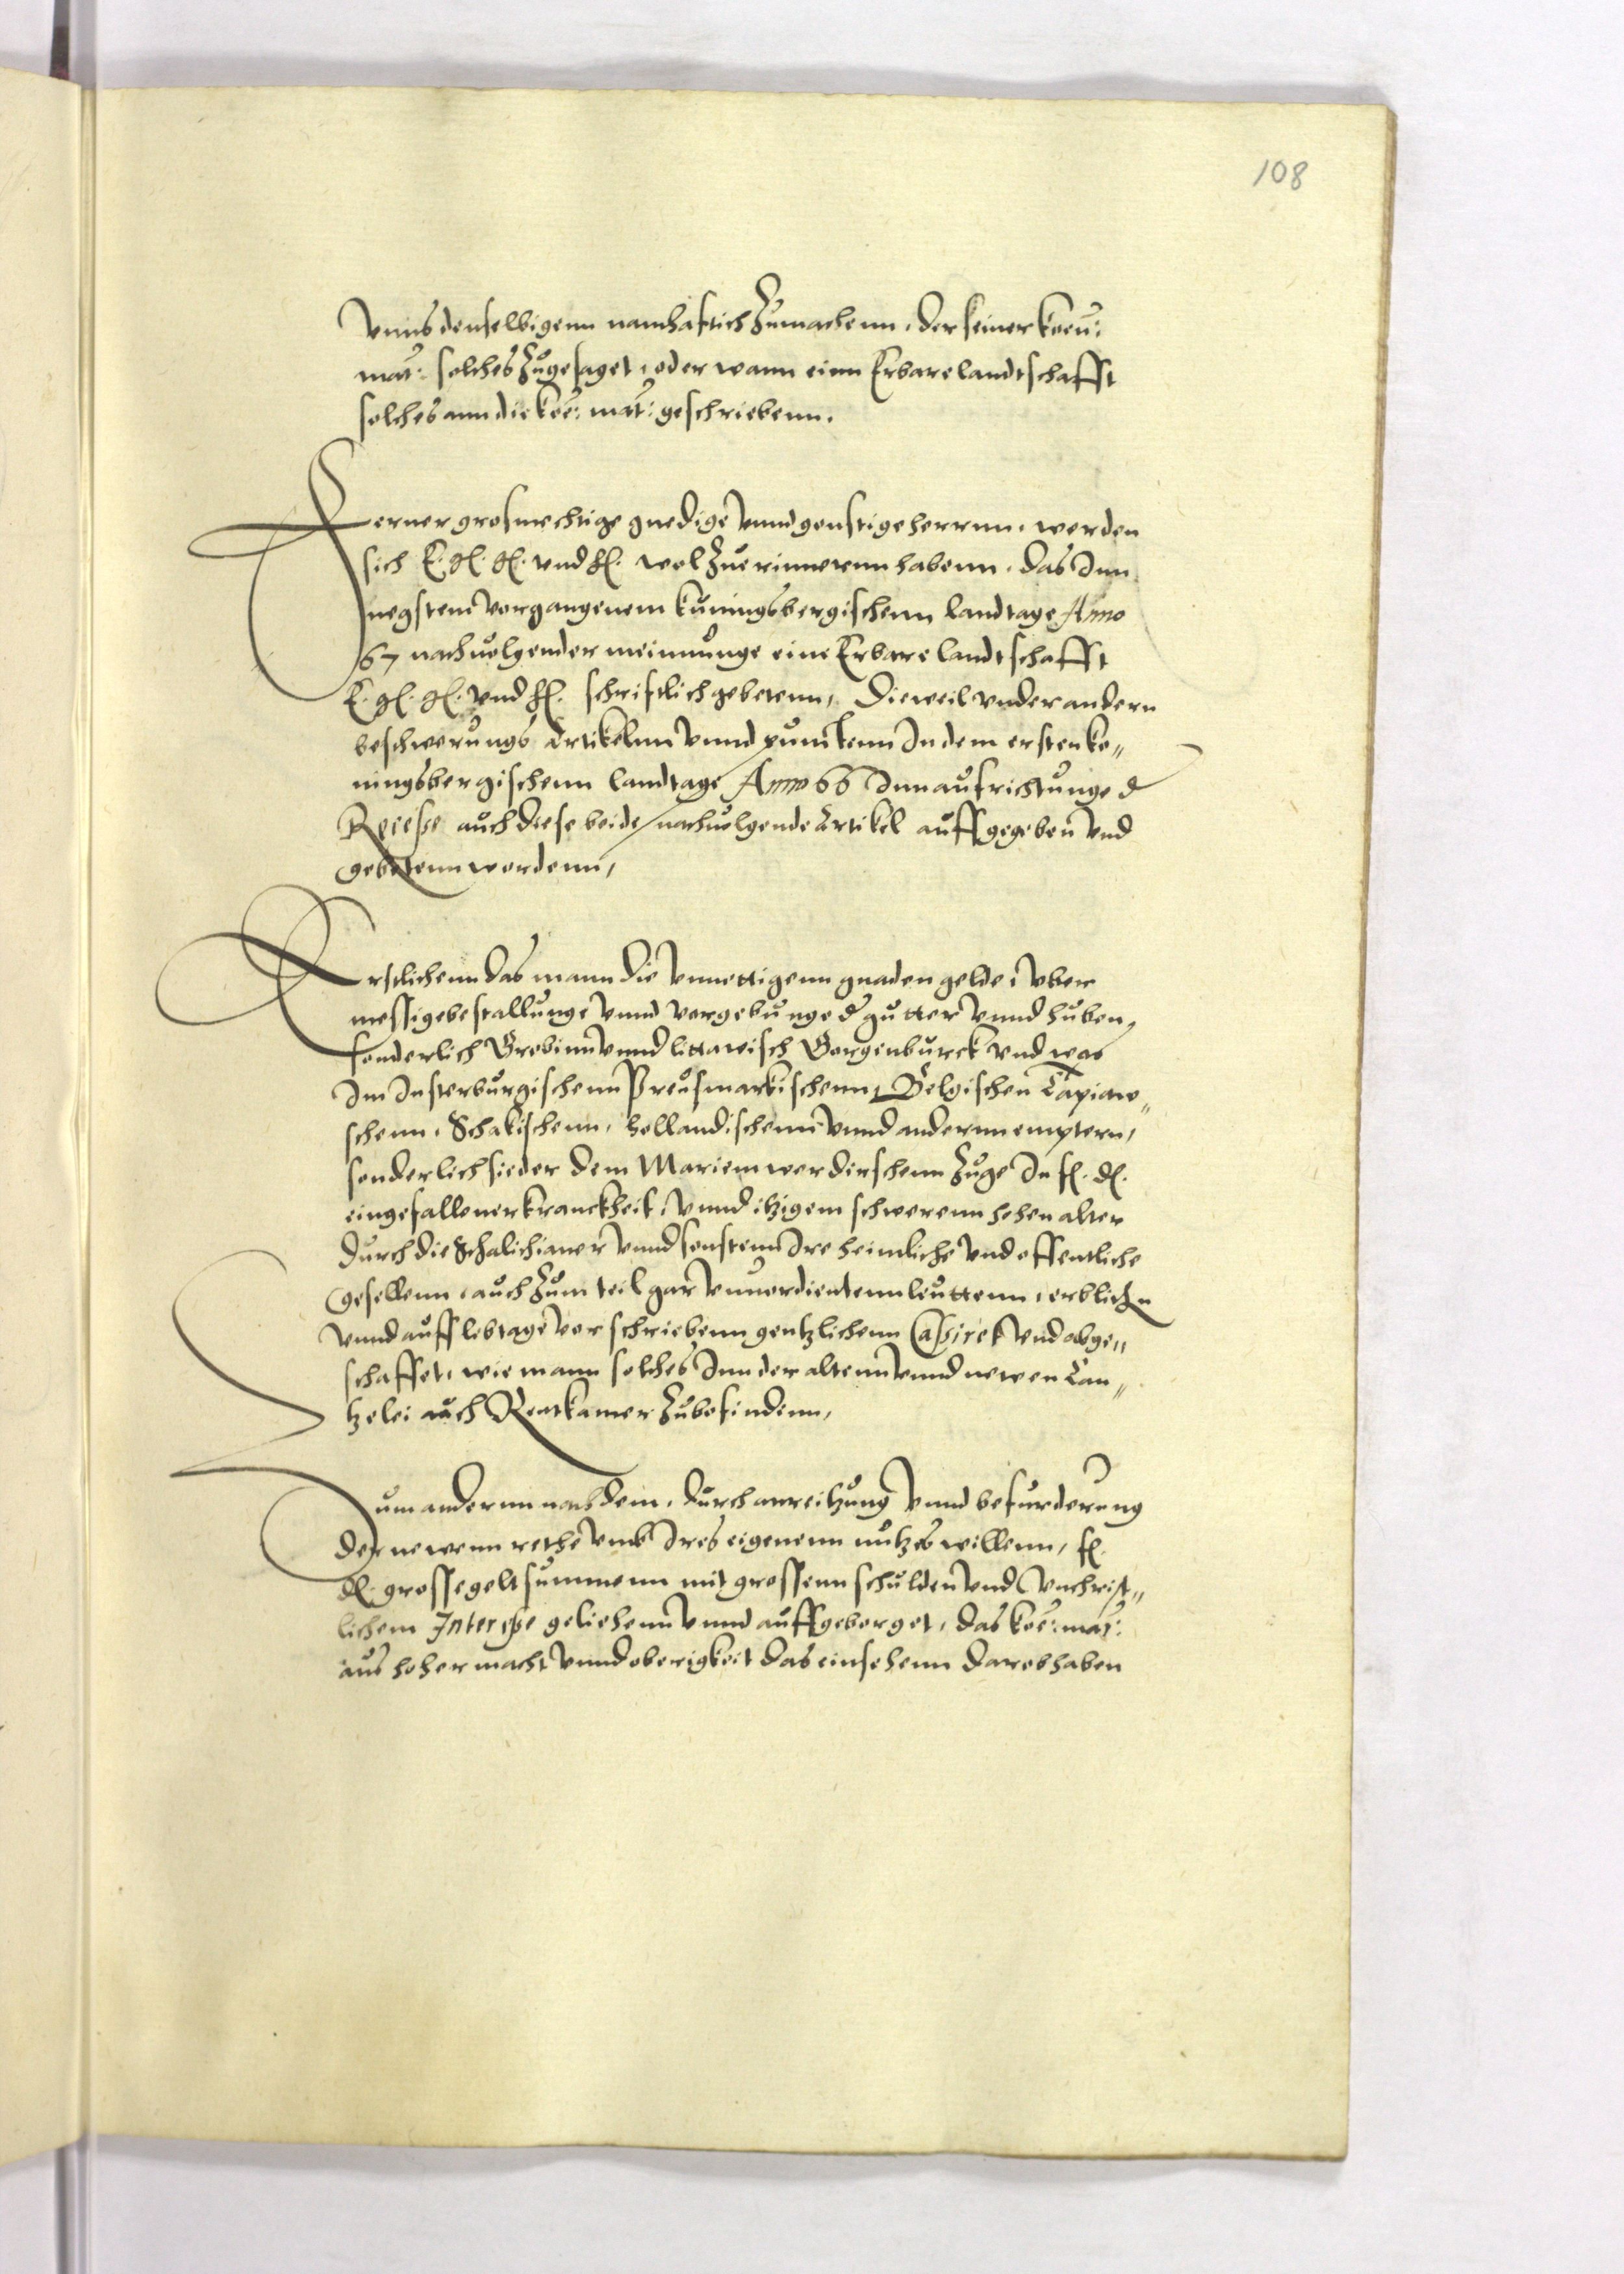 108
vnns denselbigenn namhafftich zumachenn, der seiner koen:
mat: solches zugesaget, oder wann einn Erbare landtschafft
solches ann die koe: mat: geschriebenn.
Ferner grosmechtige gnedige vnnd gonstige herrnn, werden
sich E. gl. gl. vnd hl. wol zuerinnerenn habenn, das Inn
negstem vorgangenem kuningsbergischenn landtage Anno
67 nachuolgender meinunge eine Erbare landtschafft
E. gl. gl. vnd hl. schrifftlich gebetenn, Dieweil vnder andern
beschwerungs Artikelnn vnnd punctenn In dem ersten ko„
ningsbergischenn landtage Anno 66 Inn aufrichtunge d
Recesse auch diese beide nachuolgende Artikel auffgegeben vnd
gebetenn wordenn,
Erstlichenn das mann die vnnottigenn gnadengelde, vber
messige bestallunge vnnd vorgebunge d gutter vnnd huben,
sonderlich Grobinn vnnd littawisch Gorgenburck vnd was
Im Insterburgischenn Preusmarkischenn, Tapiaw„
schenn, Schakischenn, hollandischenn vnnd andernn emptern,
sonderlich sieder dem Marienwerdirschenn zuge In fl. dl.
eingefallener kranckheit, vnnd itzigem schwerenn hohen alter
durch die Schalichianer vnnd sonstenn Ire heimliche vnd offentliche
gesellenn, auch zum teil gar vnuordientenn leuttenn, erblichen
vnnd auff lebtage vorschriebenn gentzlichenn Cassiret vnd abge„
schaffet, wie mann solches Inn der altenn vnnd newen Can„
tzelei auch Rentkamer zubefindenn,
Zum andernn nachdem, durch anreitzung vnnd befurderung
der newenn rethe vmb Ires eigenenn nutzes willenn, fl.
dl. grosse geltsummenn mit grossenn schulden vnd vnchrist„
lichem Interesse geliehenn vnnd auffgeborget, das koe: mat:
aus hoher macht vnnd oberigkeit das einsehenn darob haben